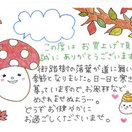 この度は お買上げ頂き
誠に ありがとうございます
街路樹の落葉が道に舞う
季節となりました。日一日と寒さが
募っていますので、お風邪など
めされませぬよう…
どうぞお健やかに
お過ごしくださいませ。